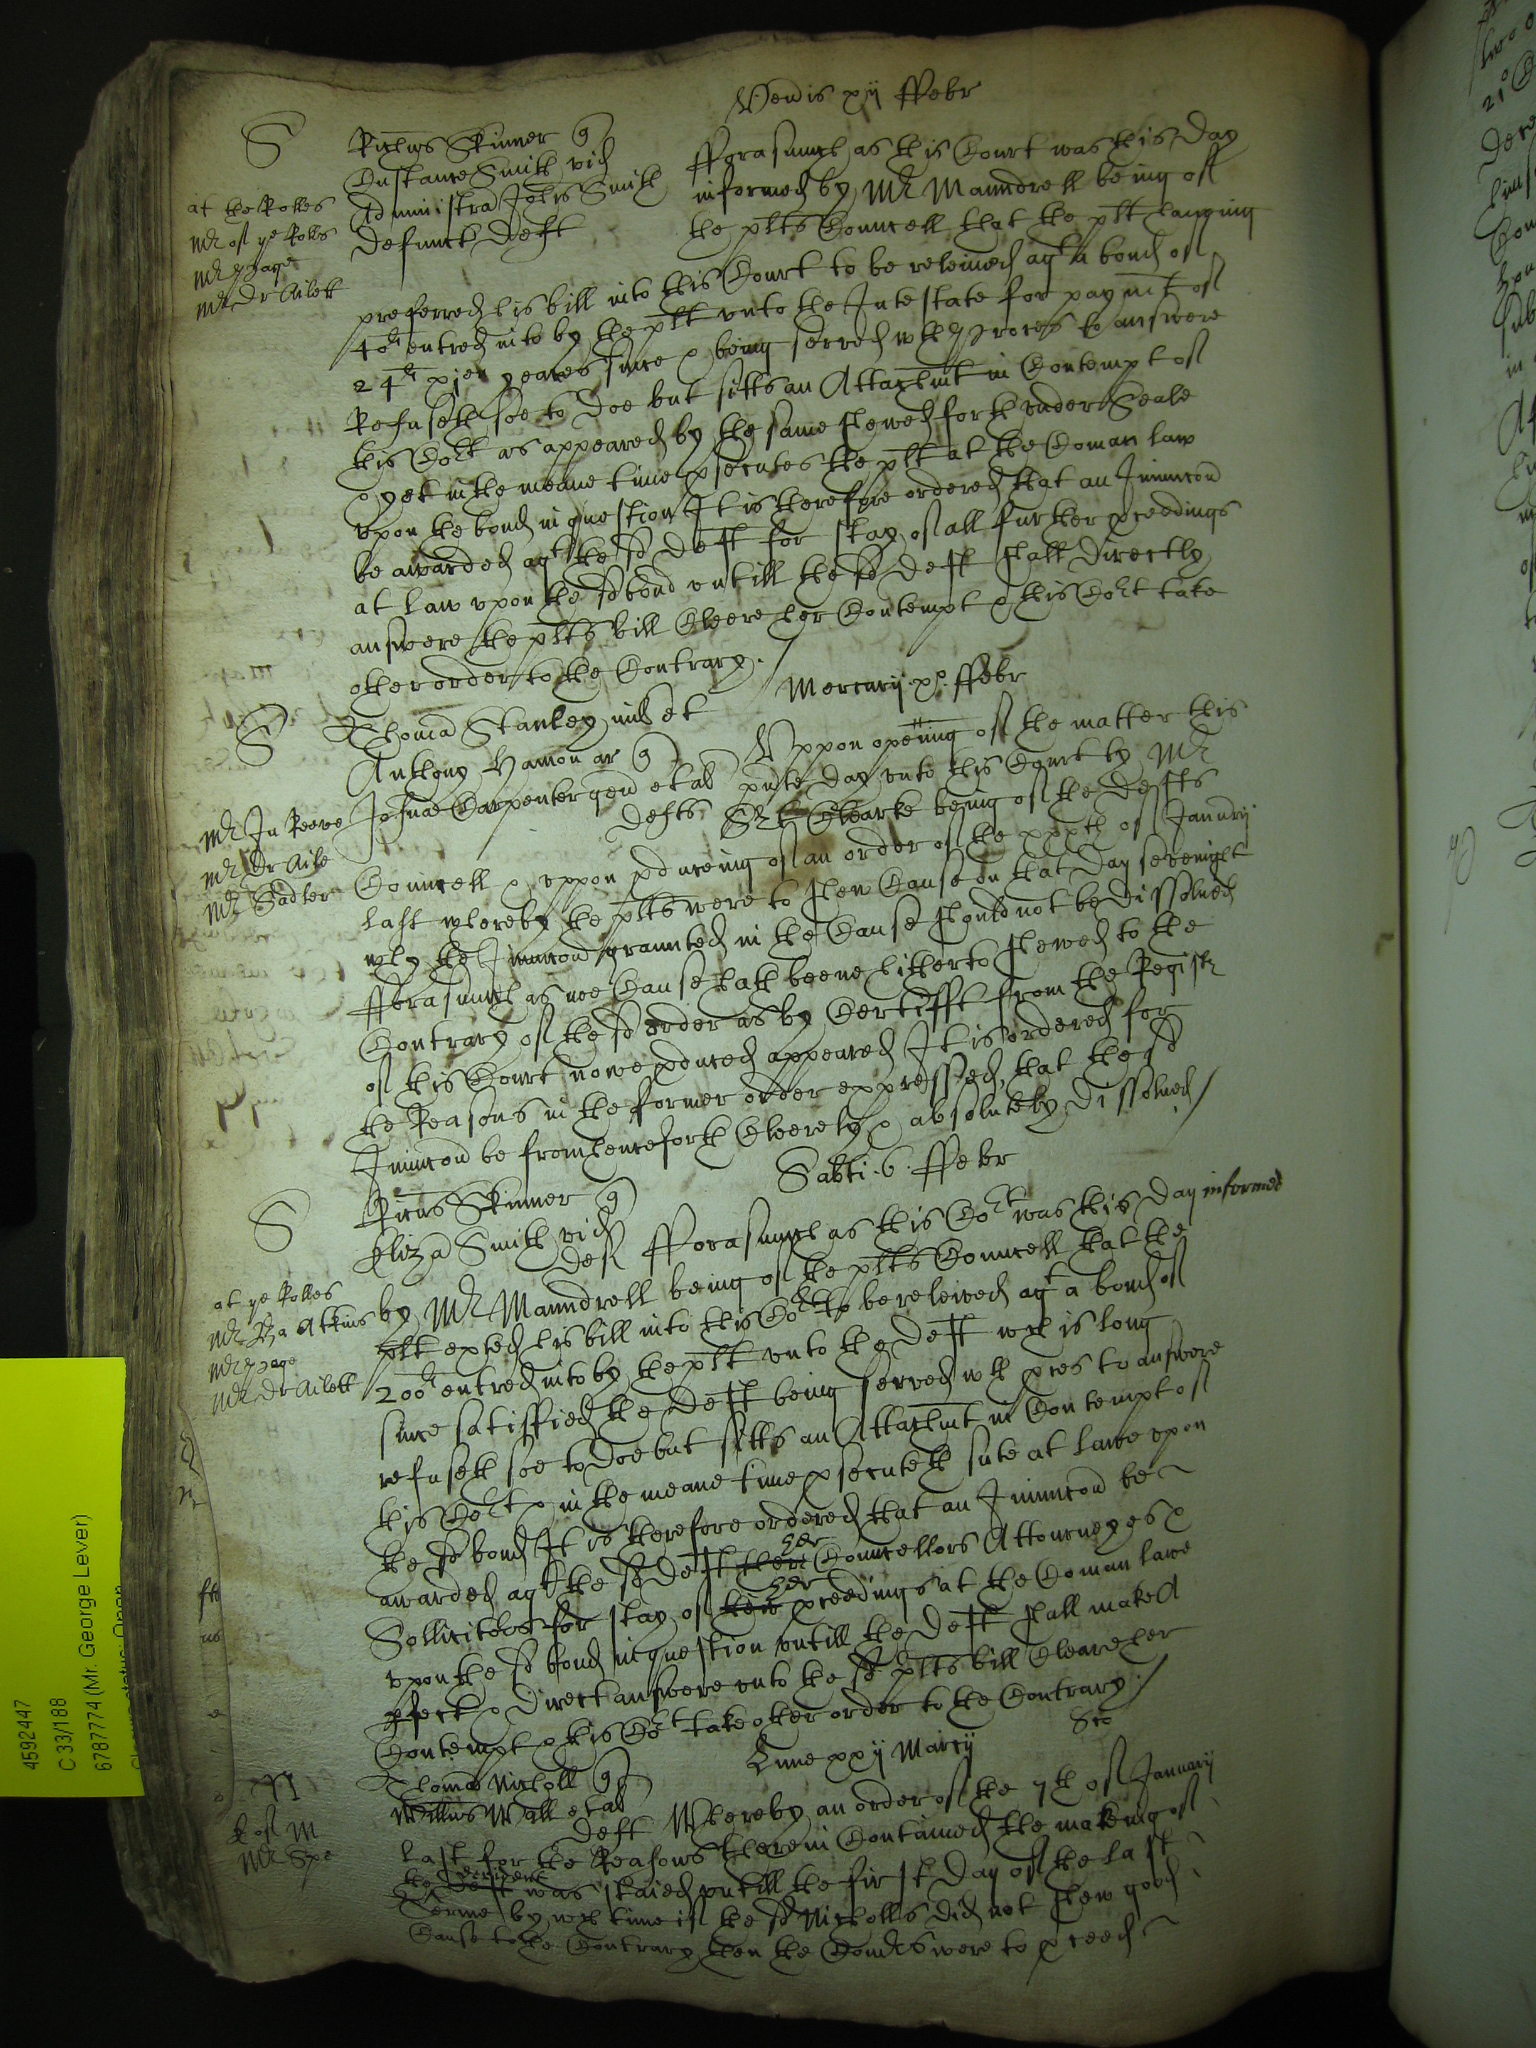 Venis xij ffebr
S
Richus Skinner q
Custance Smith vid
Administra Johis Smith
defunct deft
at the Rolles
Mr of ye Rolls
Mr page
Mr Dr Ailett
fforasmuch as this Court was this day
informed by Mr Maundrell being of
the plts Councell that the plt haveing
preferred his bill into this Court to be releived agt a bond of
40li entred into by the plt unto the Intestate for paymt of
24li xjen yeares since & being served with proces to answere
Refuseth soe to doe but sitts an Attachmt in Contempt of
this Cort as appeared by the same shewed forth under Seale
& yet in the meane time psecutes the plt at the Coman law
upon the bond in question It is therefore ordered that an Iniunccon
be awarded agt the sd deft for stay of all further pceedings
at law upon the sd bond untill the sd deft shall directly
answere the plts bill Cleere her Contempt & this Cort take
other order to the Contrary./
Mercurij xo ffebr
S
Thoma Stanley mil et
Anthony Hamon ar q
Josua Carpenter gen et al
defts
Mr Jn Reeve
Mr Dr Aile
Mr Sadler
Uppon opening of the matter this
pnte day unto this Court by Mr
Srt Clearke being of the defts
Councell & uppon pduceing of an order of the xxxth of January
last whereby the plts were to shew Cause on that day sevenight
why the Iniunccon graunted in the Cause should not be dissolved
fforasmuch as noe Cause hath beene hitherto shewed to the
Contrary of the sd order as by Certifft from the Registr
of this Court nowe pduced appeared It is ordered for
the Reasons in the former order expressed, that the sd
Iniunccon be from henceforth Cleerely & absolutely dissolved/
Sabti .6. ffebr
S
Ricus Skinner q
Eliza Smith vid
def
at ye Rolles
Mr Ra Atkins
Mr page
Mr Dr Ailett
fforasmuch as this Cort was this day informed
by Mr Maundrell being of the plts Councell that the
plt exhted his bill into this Cort to be releived agt a bond of
200li entred into by the plt unto the deft wch is long
since satisfied the deft being served with pces to answere
refuseth soe to doe but sitts an Attachmt in Contempt of
this Cort & in the meane time psecuteth sute at lawe upon
the sd bond It is therefore ordered that an Iniunccon be
awarded agt the sd deft their her Councellors Attourneyes &
Sollicitors for stay of their her pceedings at the Coman lawe
upon the sd bond in question untill the deft shall make A
pfect & direct answere unto the sd plts bill Cleare her
Contempt & this Cort take other order to the Contrary./
Lune xxij Marcij
N
Thomas Nicholl q
Willms Wall et al
deft
Whereby an order of the 7th of January
last for the Reasons therein Contained the makeing of
the was staied untill the first day of the last
Terme by wch time if the sd Nicholls did not shew good
Cause to the Contrary then the Comrs were to pceed
4592447
C 33/188
6787774 (Mr. George Lever)